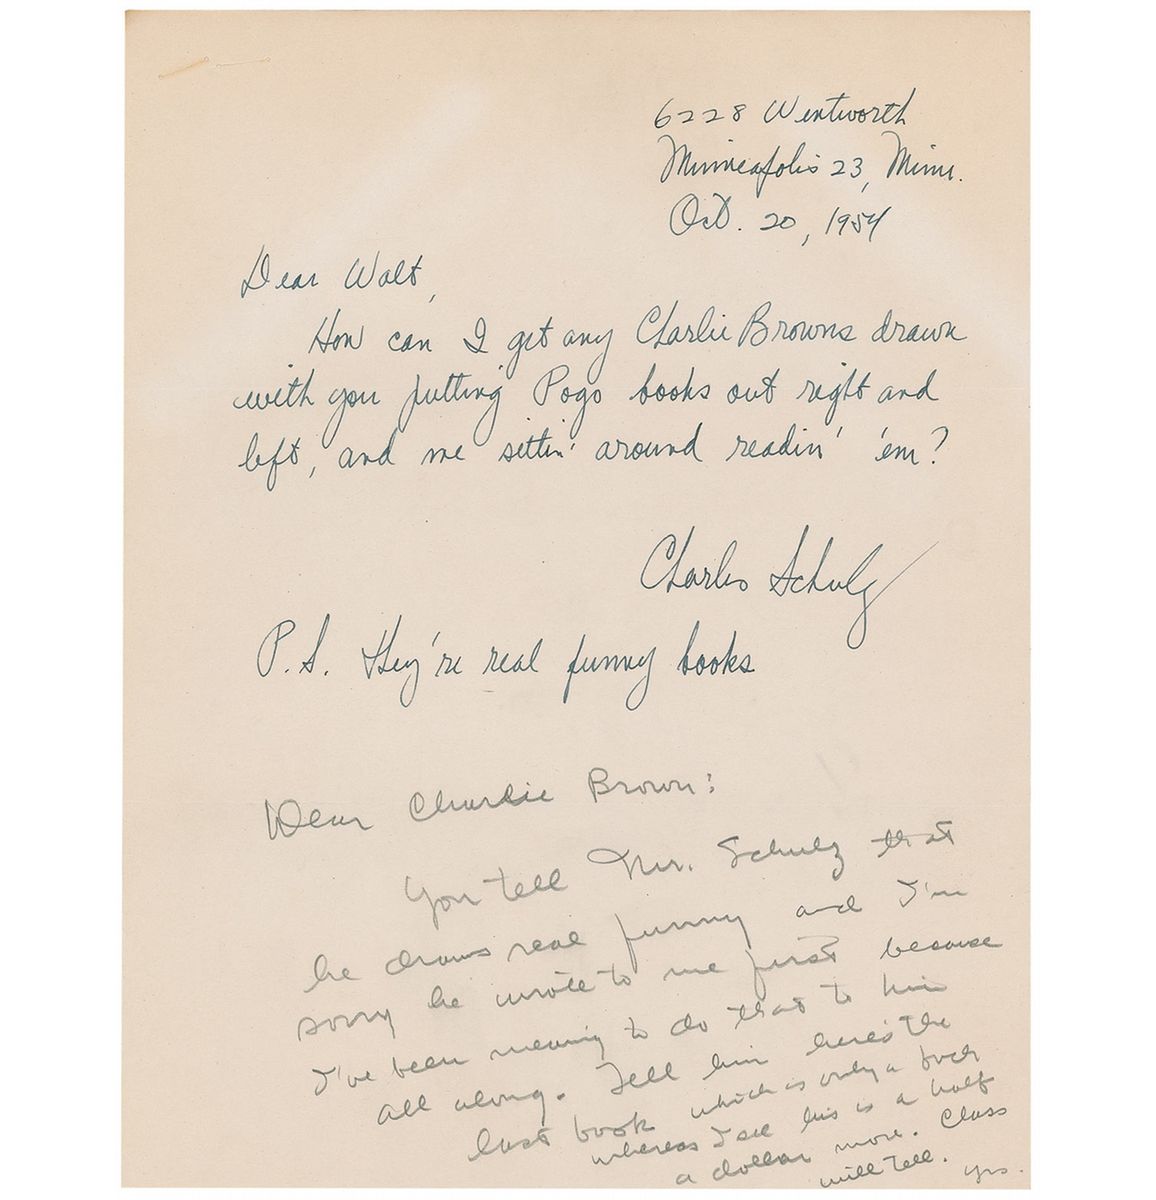 6228 Wentworth
Minneapolis 23, Minn.
Oct. 20, 1954
Dear Walt,
How can I get any Charlie Browns drawn
with you putting Pogo books out right and
left, and me sittin' around readin' 'em?
Charles Schulz
P.S. They're real funny books
Dear Charlie Brown:
You tell Mr. Schulz that
he draws real funny and I'm
sorry he wrote to me first because
I've been meaning to do that to him
all along. Tell him here's the
last book which is only a buck
whereas I see his is a half
a dollar more. Class
will tell. yrs.